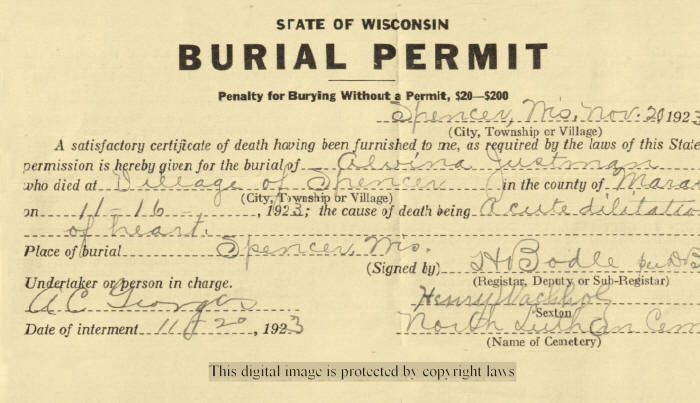 STATE OF WISCONSIN
BURIAL PERMIT
Penalty for Burying Without a Permit, $20—$200
Spencer, Wis, Nov. 20 1923
(City, Township or Village)
A satisfactory certificate of death having been furnished to me, as required by the laws of this State
permission is hereby given for the burial of Alvina Justman
who died at Village of Spencer in the county of Mara
(City, Township or Village)
on 11-16-, 1923; the cause of death being Acute dilitatio
of heart.
Place of burial Spencer, Wis.
(Signed by) H Bodle per
(Registrar, Deputy or Sub-Registrar)
Undertaker or person in charge.
A C
Henry
Sexton
Date of interment 11 20, 1923
North Luthran Cem
(Name of Cemetery)
This digital image is protected by copyright laws